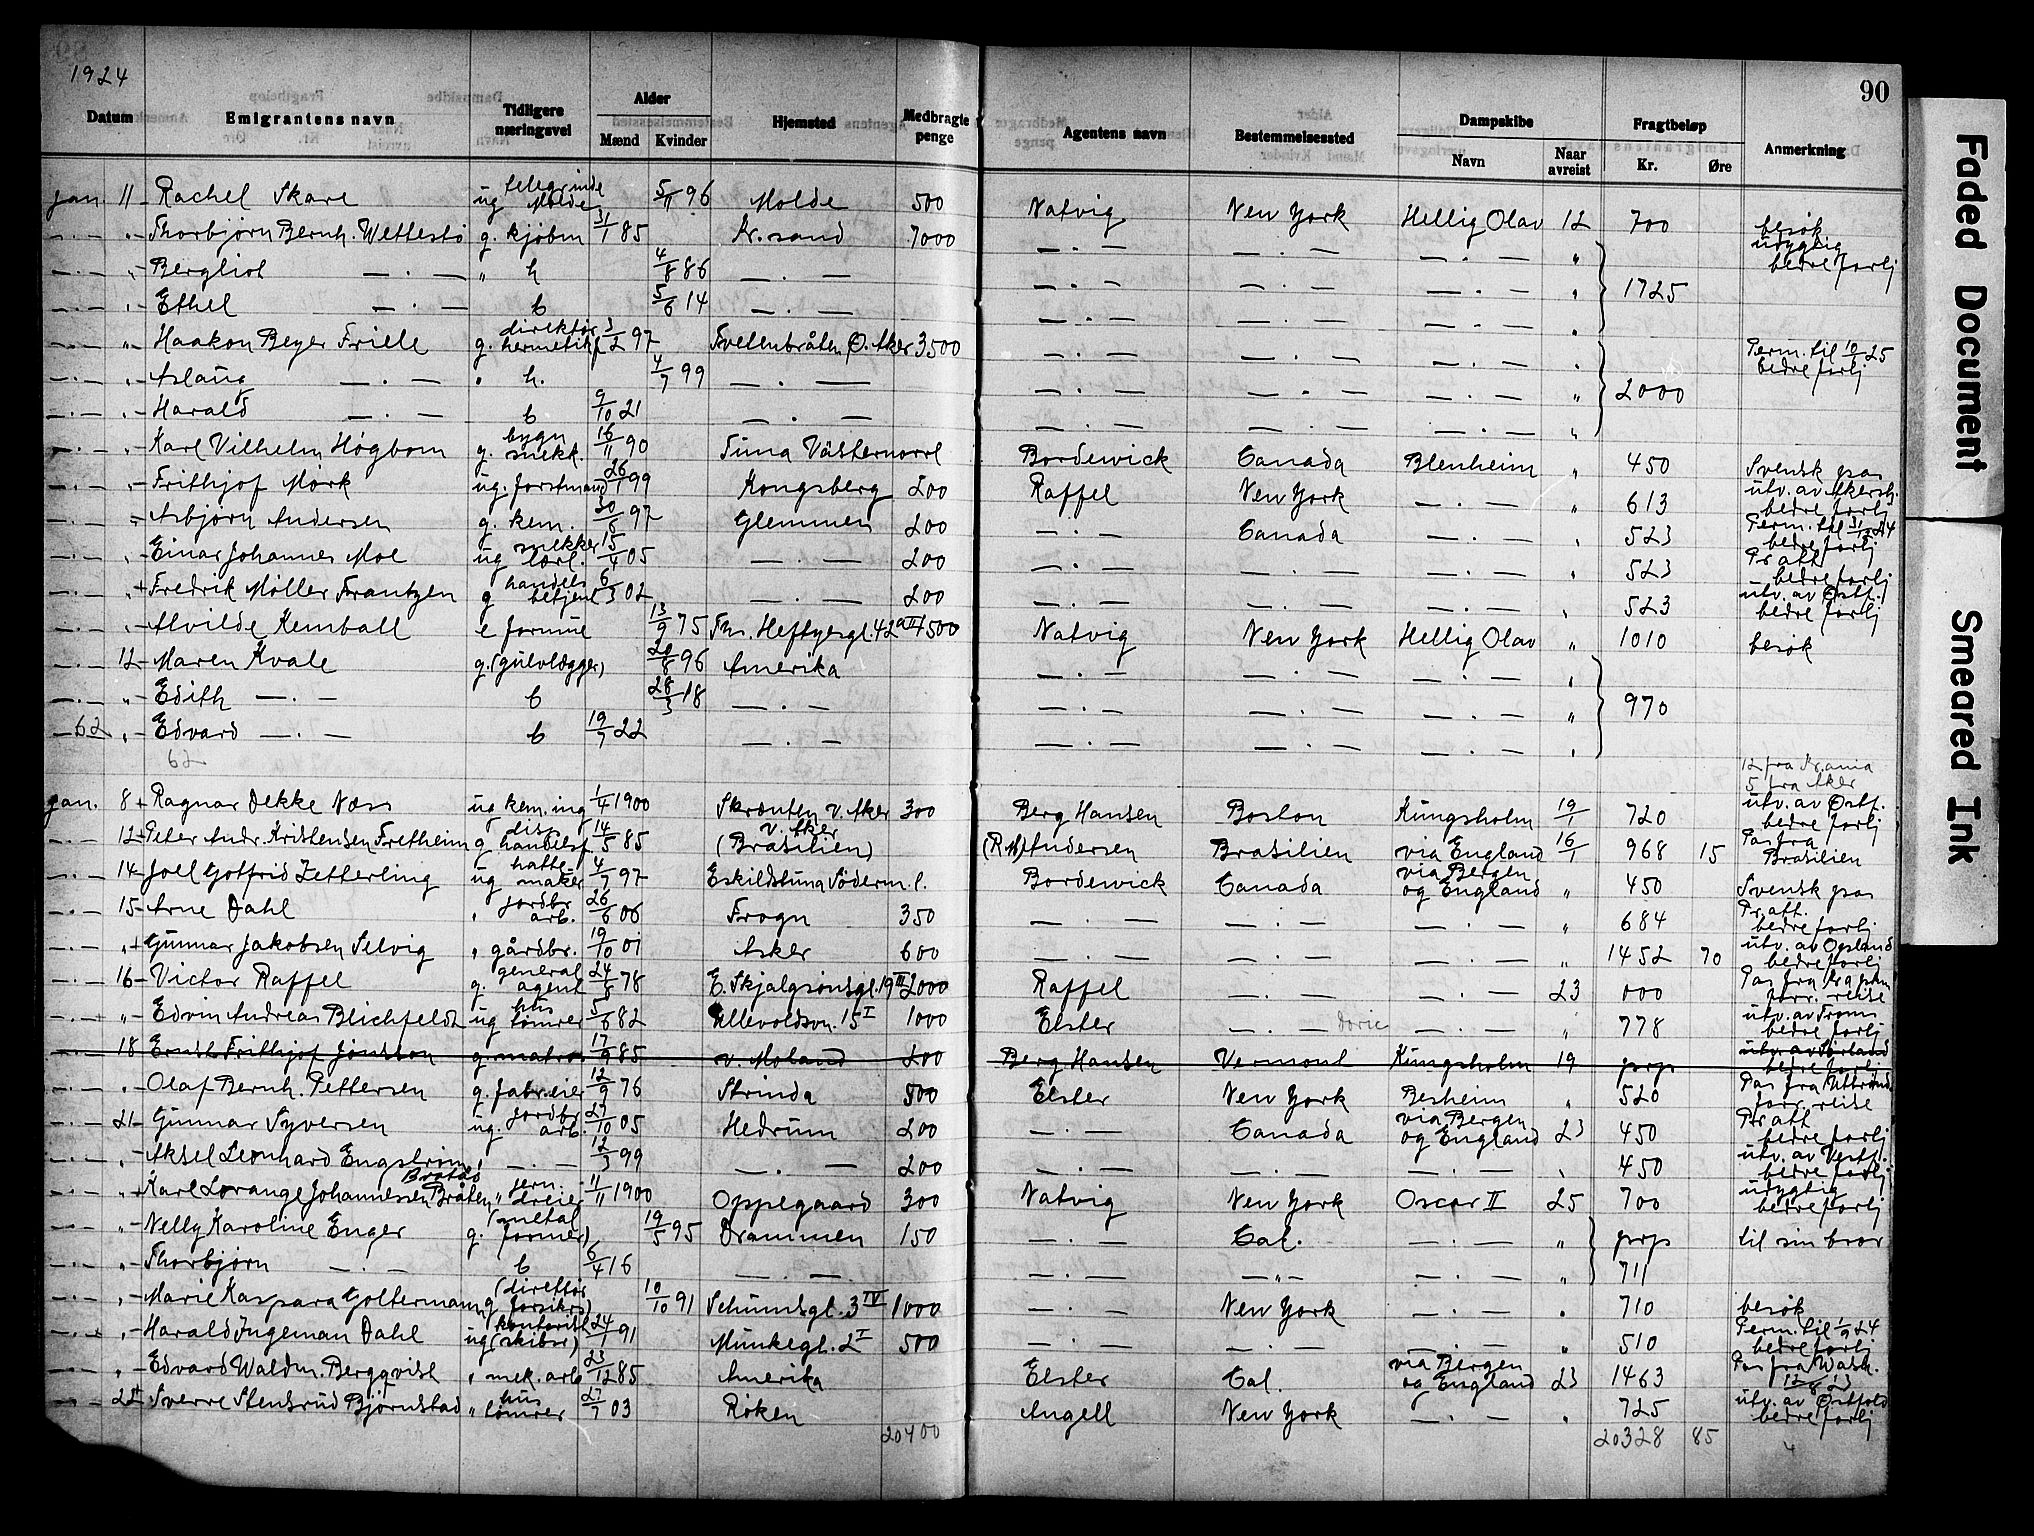 90
1924
Datum Emigrantens navn Tidligere næringsvei Alder Mænd Kvinder Hjemsted Medbragte penge Agentens navn Bestemmelsessted Dampskibe Navn Naar avreist Fragtbeløp Kr. Øre Anmerkning
jan. 11 Rachel Skare ug telegrinde Molde 5/11 96 Molde 500 Natvig New York Hellig Olav 12 700 besøk
—.— „ Thorbjørn Bernh. Wettestø g. kjøbm 31/1 85 Kr.sand 7000 —.— —.— —.— „ udygtig bedre forhj
—.— „ Bergliot —.— „ h 4/8 86 —.— —.— —.— —.— „ 1725
—.— „ Ethel —.— b 5/6 14 —.— —.— —.— —.— „
—.— „ Haakon Beyer Friele g. direktør hermetikf 3/2 97 Tvetenbråten Ø. Aker 3500 —.— —.— —.— „ Perm. til 10/10 25 bedre forhj
—.— „ Aslaug —.— „ h. 4/7 99 —.— —.— —.— —.— „ 2000
—.— „ Harald —.— b 9/10 21 —.— —.— —.— —.— „
—.— „ Karl Vilhelm Högbom g. bygn snekk. 16/11 90 Tuna Västernorrl Bordewick Canada Blenheim „ 450 Svensk pas
—.— „ Frithjof Mørk ug. forstmand 26/1 99 Kongsberg 200 Raffel New York —.— „ 613 utv. av Akersh. bedre forhj
—.— „ Asbjørn Andersen g. kem. 30/8 97 Glemmen 200 —.— Canada —.— „ 523 Perm. til 31/12 24 bedre forhj
—.— „ Einar Johannes Moe ug snekker lærl. 15/4 05 —.— 200 —.— —.— —.— „ 523 Pr att bedre forhj
—.— „ Fredrik Møller Frantzen g handels betjent 6/3 02 —.— 200 —.— —.— —.— „ 523 utv. av Østf. bedre forhj
—.— „ Alvilde Kemball e formue 13/9 75 Th. Heftyesgt. 42 II 1500 Natvig New York Hellig Olav „ 1010 besøk
12 Maren Kvale g. (gulvlægger) 20/8 96 Amerika —.— —.— —.— „
—.— „ Edith —.— b 28/3 18 —.— —.— —.— —.— „ 970
62 „ Edvard —.— b 19/7 22 —.— —.— —.— —.— „
62
12 fra Kr.ania
5 fra Aker
jan. 8 Ragnar Dekke Næss ug kem. ing 1/4 1900 Skrænten v. Aker 300 Berg Hansen Boston Kungsholm 19/1 720 utv. av Østf. bedre forhj
—.— 12 Peter Andr. Kristensen Fretheim g disp. handelsf 14/5 85 v. Aker (Brasilien) (R.M) Andersen Brasilien via England 16/1 968 15 Pas fra Brasilien
—.— 14 Joel Gotfrid Zetterling ug hatte maker 4/7 97 Eskildstuna Söderm. l. Bordewick Canada via Bergen og England „ 450 Svensk pas
—.— 15 Arne Dahl „ jordbr arb. 26/6 06 Frogn 350 —.— —.— —.— „ 684 Pr att. bedre forhj
—.— „ Gunnar Jakobsen Selvig „ gårdbr. 19/10 01 Asker 600 —.— —.— —.— „ 1452 70 utv. av Opland bedre forhj
—.— 16 Victor Raffel g. general agent 24/8 78 E. Skjalgsönsgt. 19 III 2000 Raffel —.— —.— 23 000 Pas fra forr. reise
—.— „ Edvin Andreas Blichfeldt ug hus tømrer 5/6 82 Ullevoldsvn. 15 I 1000 Elster —.— Doric „ 778 utv. av Troms bedre forhj
—.— 18 Ernst Frithjof Jonsson g. matros 17/9 85 v. Moland 200 Berg Hansen Vermont Kungsholm 19 prp utv. av Sørland bedre forhj
—.— „ Olaf Bernh. Pettersen g. fabr.eier 12/9 76 Strinda 500 Elster New York Besheim „ 520 Pas fra Uttrønd forr. reise
—.— 21 Gunnar Syversen ug. jordbr arb. 27/10 05 Hedrum 200 —.— Canada via Bergen og England 23 450 Pr att bedre forhj
—.— „ Aksel Leonhard Engstrøm „ —.— 12/3 99 —.— 200 —.— —.— —.— „ 450 utv. av Vestf. bedre forhj
—.— „ Karl Lorange Johannessen Bråten „ jern dreier 11/11 1900 Oppegaard 300 Natvig New York Oscar II 25 700 udygtig bedre forhj
—.— „ Nelly Karoline Enger g. (metal former) 19/5 95 Drammen 150 —.— Cal. —.— „ prp til sin bror
—.— „ Thorbjørn —.— b 6/4 16 —.— —.— —„— —.— „ 711
—.— „ Marie Kaspara Goltermann g (direktør forsikrs) 10/10 91 Schumsgt. 3 IV 1000 —.— New York —.— „ 710 besøk
—.— „ Harald Ingeman Dahl ug kontorist (skibsr) 24/1 91 Munkegt. 2 I 500 —.— —.— —.— „ 510 Perm. til 1/9 24 bedre forhj
—.— „ Edvard Waldm. Bergqvist „ mek. arb 23/12 85 Amerika Elster Cal. via Bergen og England 23 1463 Pas fra Wash. 12/8 23
—.— 22 Sverre Stensrud Bjørnstad „ hus tømrer 27/7 03 Røken Angell New York —.— „ 725 utv. av Østfold bedre forhj
20400 20328 85 4
Faded Document
Smeared Ink